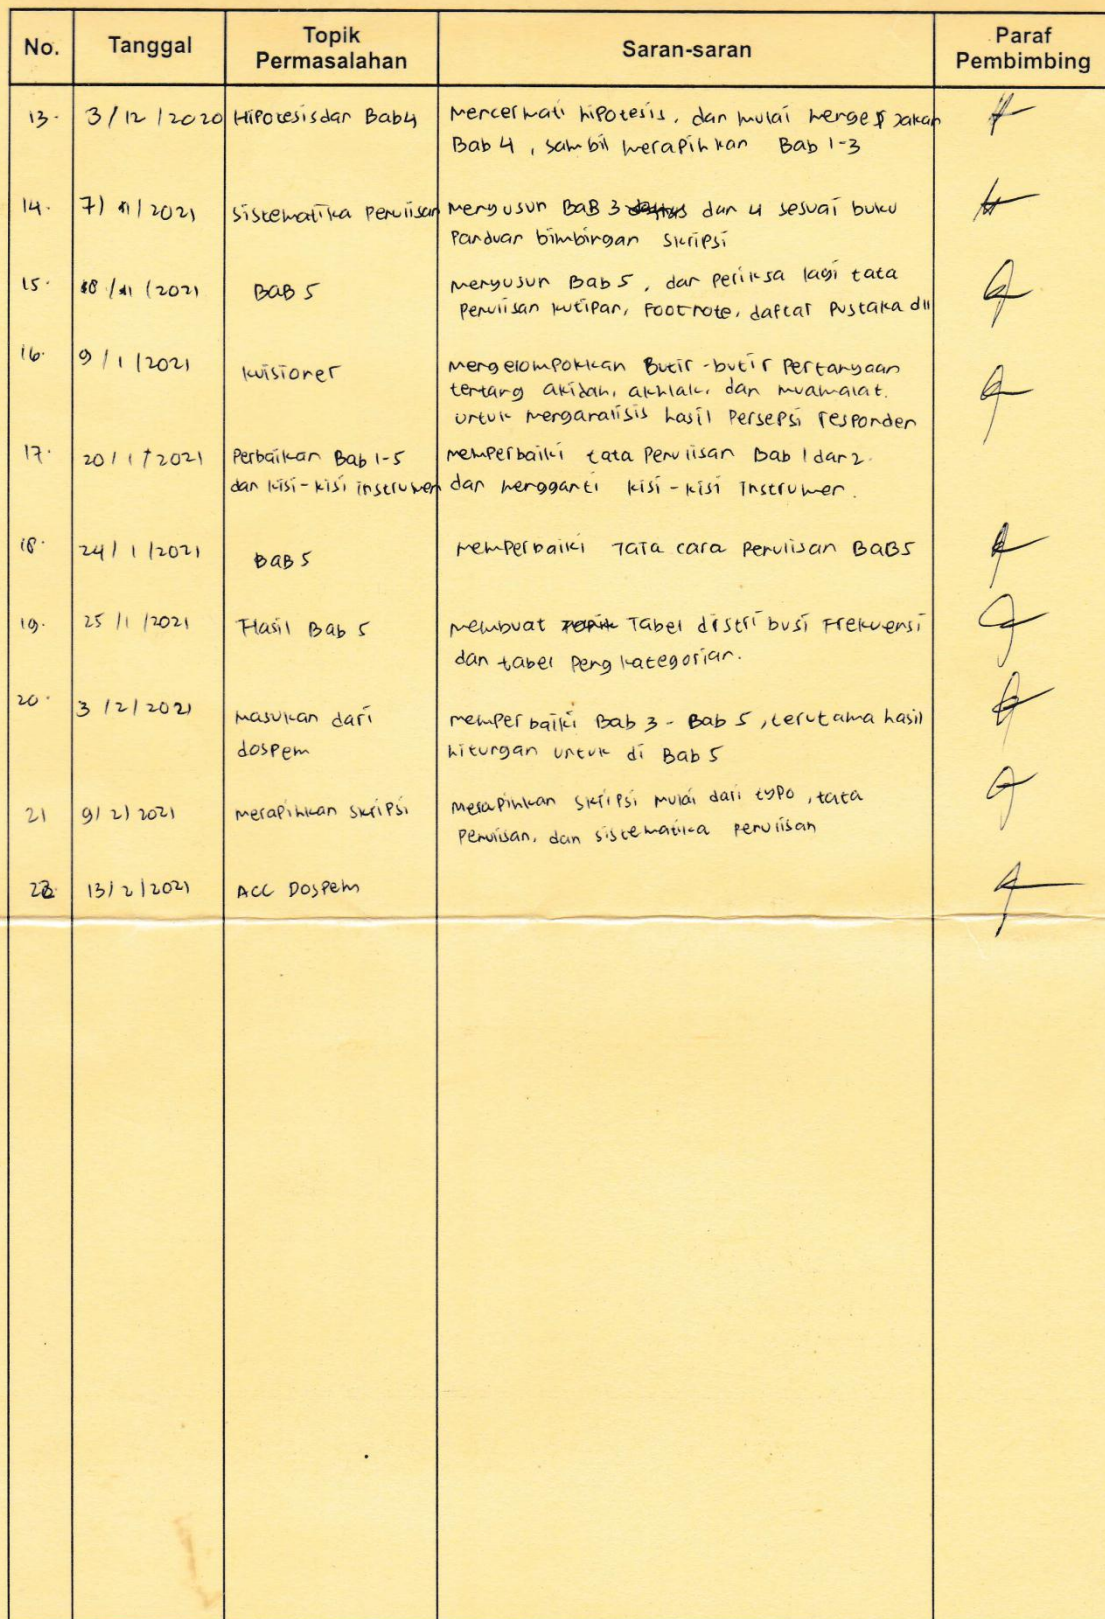 No. Tanggal Topik Permasalahan Saran-saran Paraf Pembimbing
13. 3/12/2020 Hipotesis dan Bab 4 Mencermati hipotesis, dan mulai mengerjakan
Bab 4, sambil merapihkan Bab 1-3
14. 7/1/2021 Sistematika Penulisan Menyusun BAB 3 dan 4 sesuai buku
Panduan bimbingan skripsi
15. 8/1/2021 BAB 5 Menyusun Bab 5, dan periksa lagi tata
Penulisan kutipan, Footnote, daftar Pustaka dll
16. 9/1/2021 kuisioner Mengelompokkan Butir-butir Pertanyaan
tentang akidah, akhlak, dan muamalat.
untuk menganalisis hasil Persepsi responden
17. 20/1/2021 Perbaikan Bab 1-5 memperbaiki tata Penulisan Bab 1 dan 2.
dan kisi-kisi instrumen dan mengganti kisi-kisi Instrumen.
18. 24/1/2021 BAB 5 Memperbaiki Tata cara Penulisan BAB 5
19. 25/1/2021 Hasil Bab 5 Membuat Tabel distribusi Frekuensi
dan tabel Pengkategorian.
20. 3/2/2021 Masukan dari memperbaiki Bab 3 - Bab 5, terutama hasil
dospem hitungan untuk di Bab 5
21 9/2/2021 merapihkan skripsi Merapihkan skripsi mulai dari typo, tata
Penulisan, dan sistematika penulisan
22. 13/2/2021 ACC Dospem